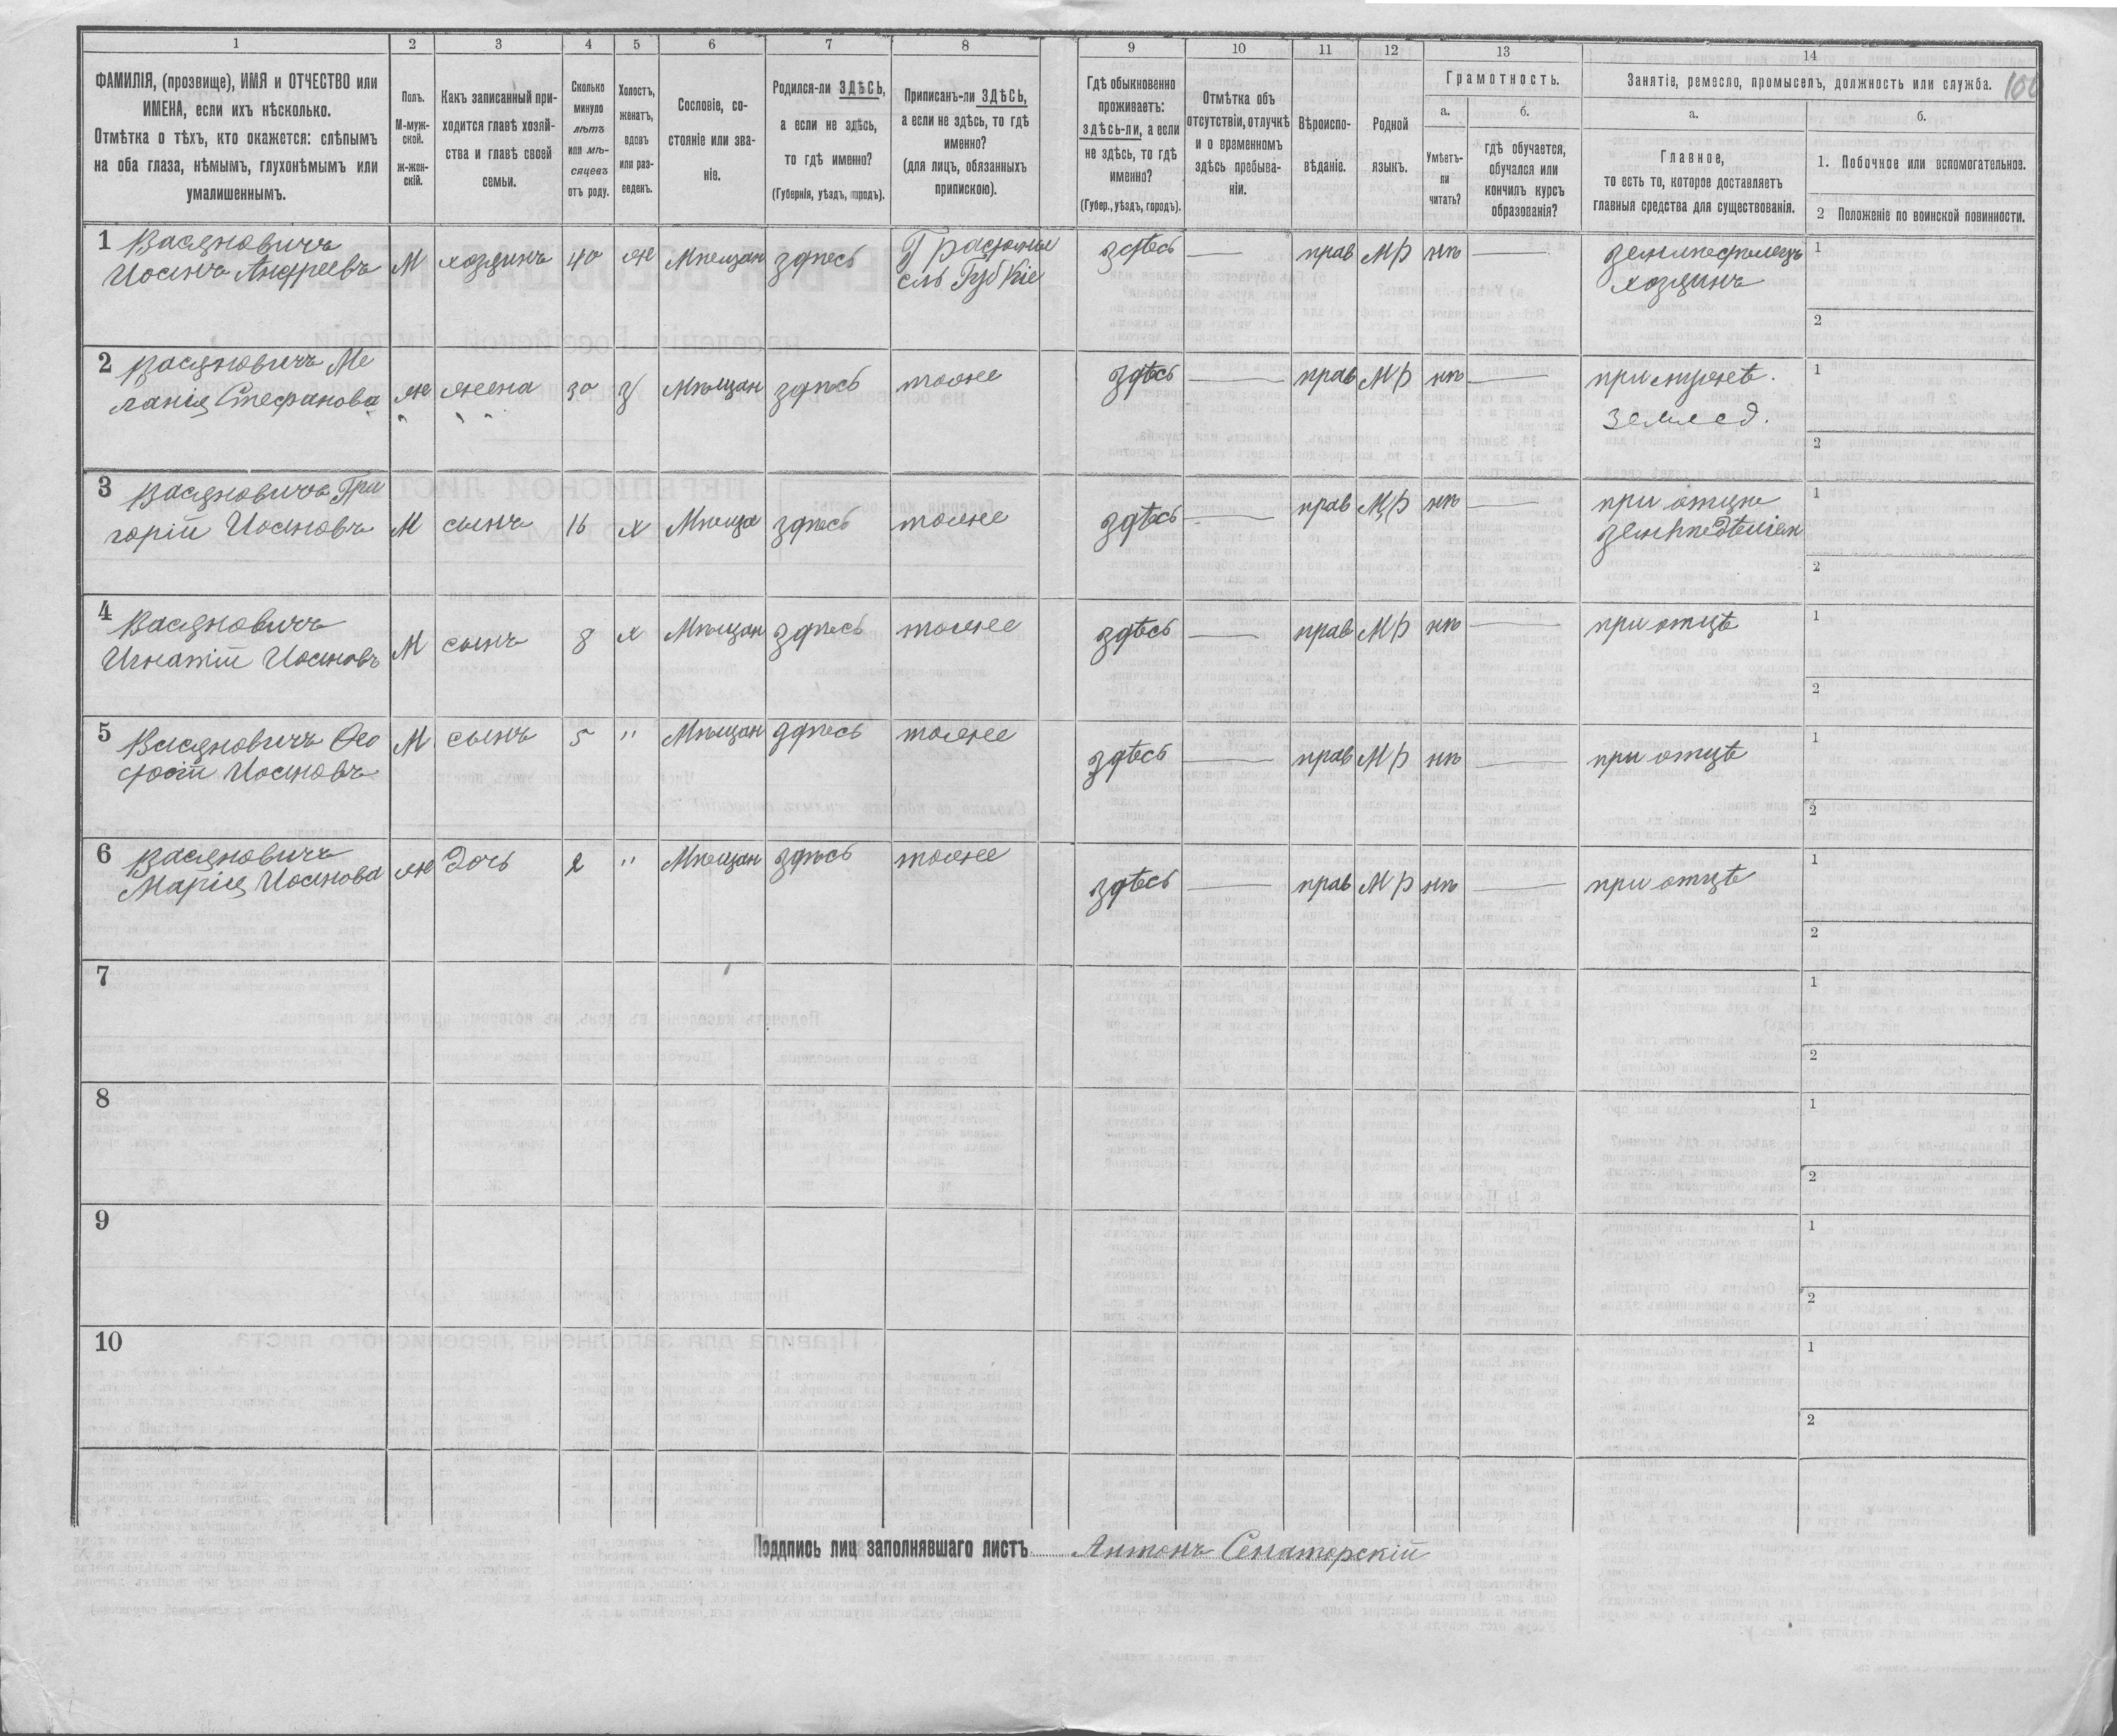 1 2 3 4 5 6 7 8 9 10 11 12 13 14
ФАМИЛІЯ, (прозвище), ИМЯ и ОТЧЕСТВО или
ИМЕНА, если ихъ нѣсколько.
Отмѣтка о тѣхъ, кто окажется: слѣпымъ
на оба глаза, нѣмымъ, глухонѣмымъ или
умалишеннымъ.
Полъ.
М-муж-
ской.
ж-жен-
скій.
Какъ записанный при-
ходится главѣ хозяй-
ства и главѣ своей
семьи.
Сколько
минуло
лѣтъ
или мѣ-
сяцевъ
отъ роду.
Холостъ,
женатъ,
вдовъ
или раз-
веденъ.
Сословіе, со-
стояніе или зва-
ніе.
Родился-ли ЗДѢСЬ,
а если не здѣсь,
то гдѣ именно?
(Губернія, уѣздъ, городъ).
Приписанъ-ли ЗДѢСЬ,
а если не здѣсь, то гдѣ
именно?
(для лицъ, обязанныхъ
припискою).
Гдѣ обыкновенно
проживаетъ:
здѣсь-ли, а если
не здѣсь, то гдѣ
именно?
(Губер., уѣздъ, городъ).
Отмѣтка объ
отсутствіи, отлучкѣ
и о временномъ
здѣсь пребыва-
ніи.
Вѣроиспо-
вѣданіе.
Родной
языкъ.
Грамотность.
а.
Умѣетъ-
ли
читать?
б.
гдѣ обучается,
обучался или
кончилъ курсъ
образованія?
Занятіе, ремесло, промыселъ, должность или служба.
а.
Главное,
то есть то, которое доставляетъ
главныя средства для существованія.
б.
1. Побочное или вспомогательное.
2 Положеніе по воинской повинности.
1 Васяновичъ
Иоанъ Андреевъ М хозяинъ 40 же Мѣщан здѣсь
сль Губ Кіе
здѣсь — прав МР нѣ —
хозяинъ
1
2
2 Васяновичъ Ме
ланія Стефанова же жена 30 з Мѣщан здѣсь тоже здѣсь — прав МР нѣ — при мужѣ.
землед.
1
2
3 Васяновичъ Гри
горій Иоановъ М сынъ 16 х Мѣща здѣсь тоже здѣсь — прав МР нѣ — при отцѣ
1
2
4 Васяновичъ
Игнатій Иоановъ М сынъ 8 х Мѣщан здѣсь тоже здѣсь — прав МР нѣ — при отцѣ
1
2
5 Васяновичъ Ѳео
досій Иоановъ М сынъ 5 " Мѣщан здѣсь тоже здѣсь — прав МР нѣ — при отцѣ
1
2
6 Васяновичъ
Марія Иоанова же дочь 2 " Мѣщан здѣсь тоже здѣсь — прав МР нѣ — при отцѣ
1
2
7
1
2
8
1
2
9
1
2
10
1
2
Поддпись лиц заполнявшаго листъ Антонъ Сенаторскій